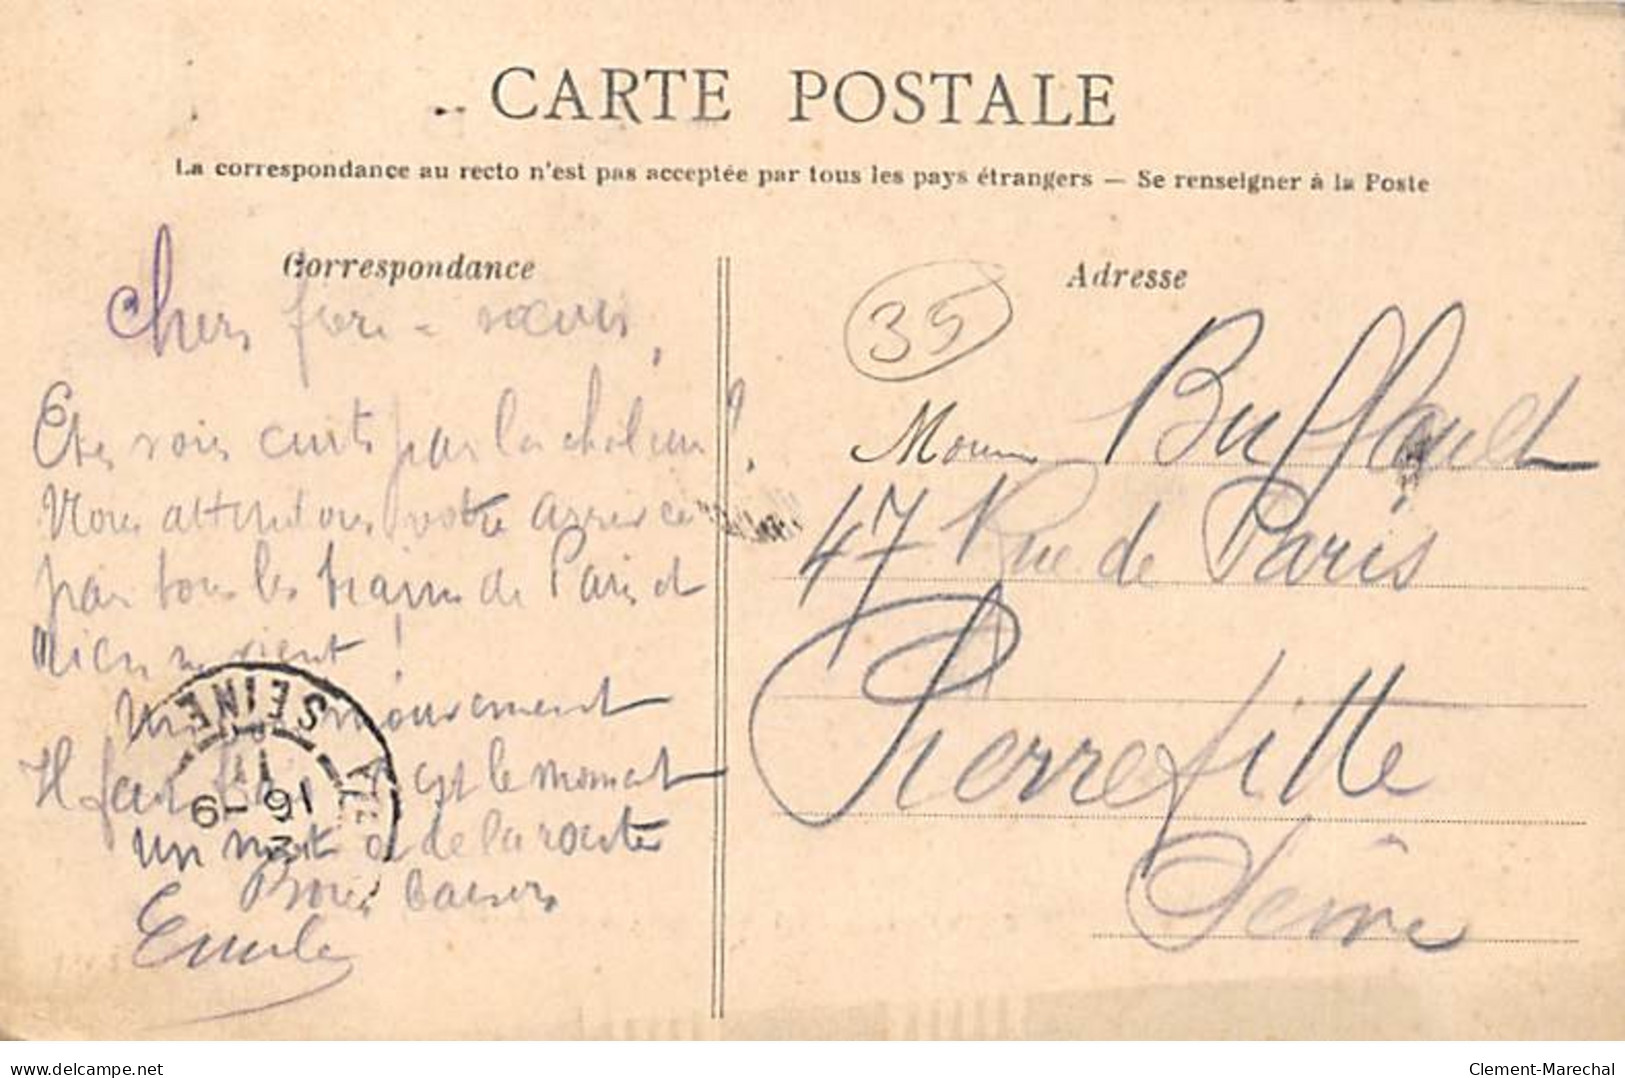 CARTE POSTALE
La correspondance au recto n'est pas acceptée par tous les pays étrangers — Se renseigner à la Poste
Correspondance
Chers frère - sœurs,
Etes vous cuits par la chaleur ?
Nous attendons votre arrivée
par tous les trains de Paris et
rien ne vient !
Un mouvement
Il faut est le moment
un mot de la route
Bons baisers
Emile
SEINE
16 - 9
Adresse
35
Buffault
47 Rue de Paris
Pierrefitte
Seine
www.delcampe.net
Clement-Marechal